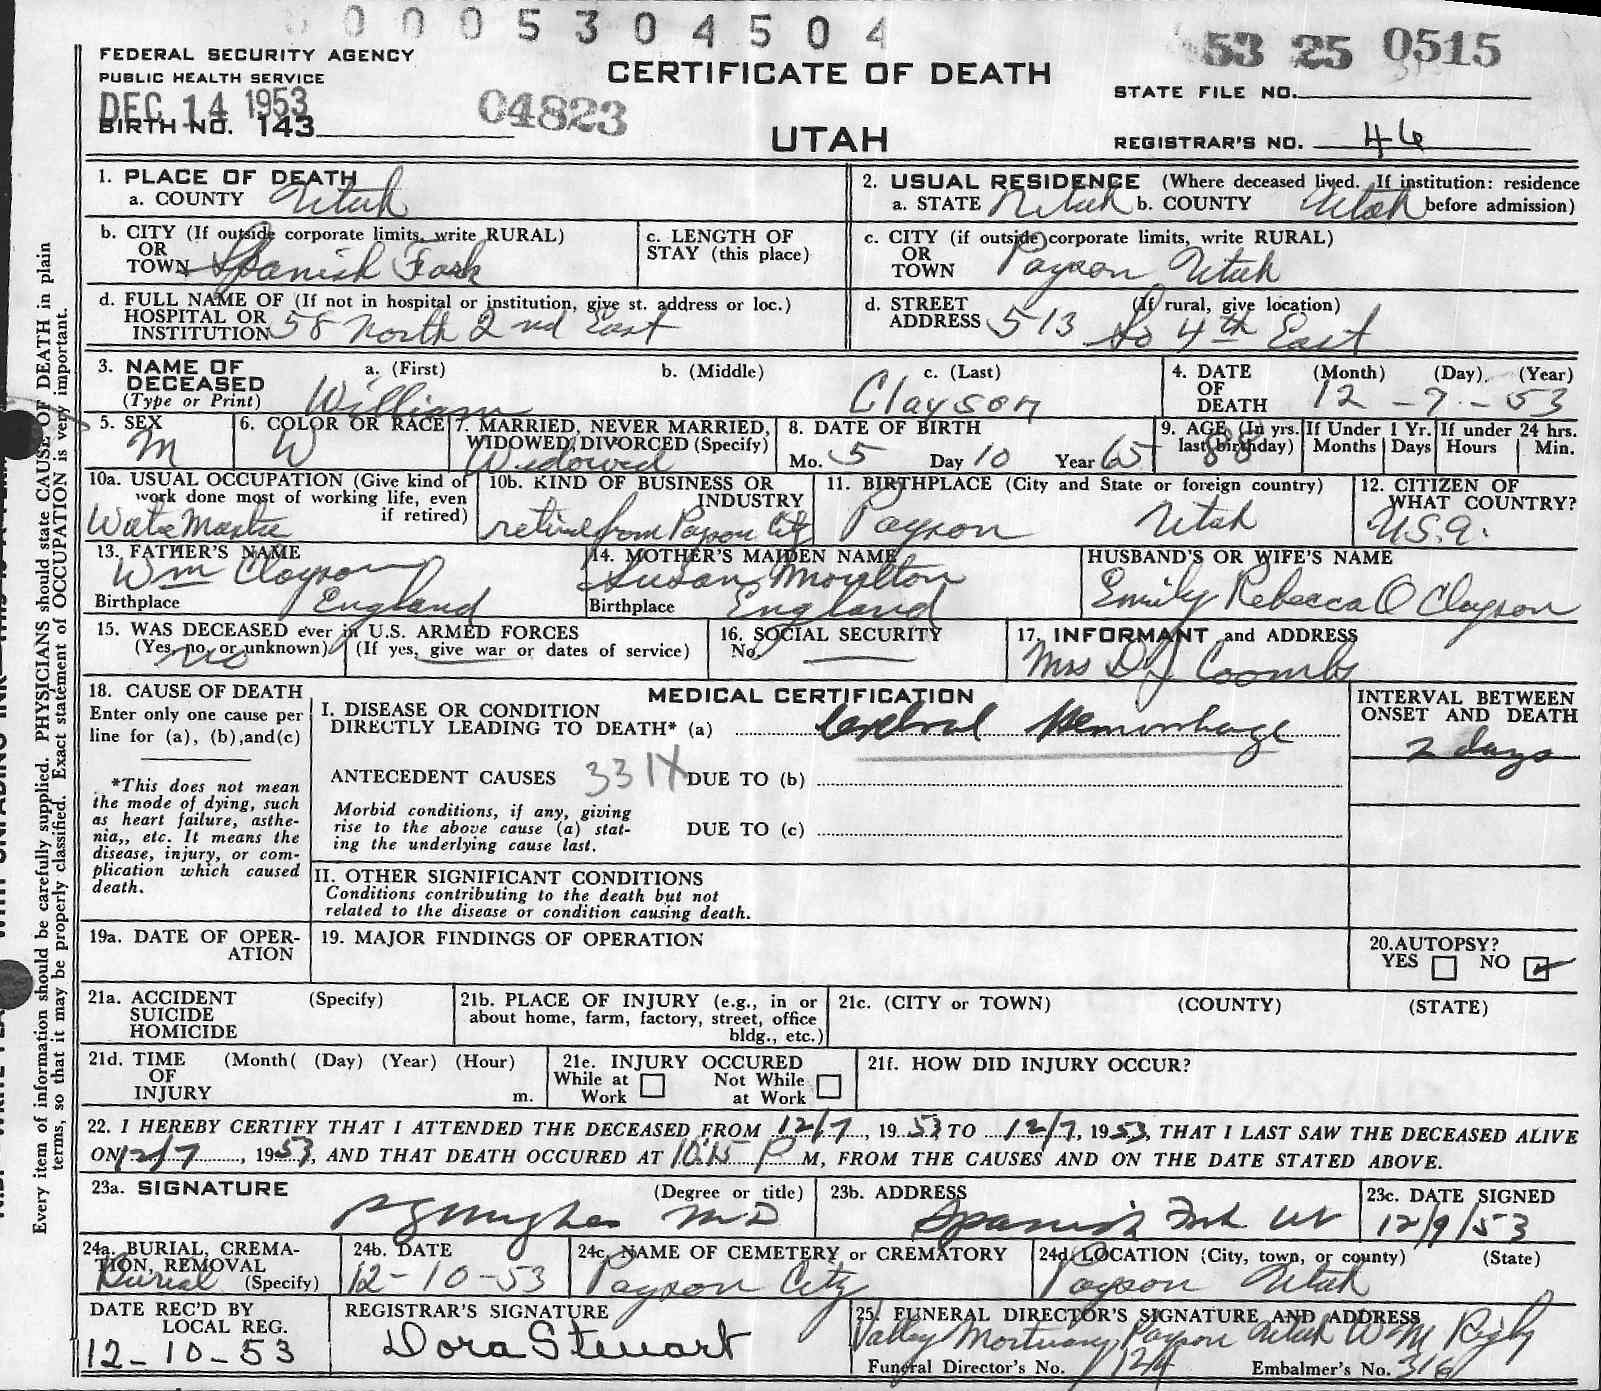 0 0 0 5 3 0 4 5 0 4
FEDERAL SECURITY AGENCY
PUBLIC HEALTH SERVICE
DEC 14 1953
BIRTH NO. 143
04823
CERTIFICATE OF DEATH
UTAH
53 25 0515
STATE FILE NO.
REGISTRAR'S NO. 46
1. PLACE OF DEATH
a. COUNTY Utah
2. USUAL RESIDENCE (Where deceased lived. If institution: residence
a. STATE Utah b. COUNTY Utah before admission)
b. CITY (If outside corporate limits, write RURAL)
OR
TOWN Spanish Fork
c. LENGTH OF
STAY (this place)
c. CITY (if outside corporate limits, write RURAL)
OR
TOWN Payson Utah
d. FULL NAME OF (If not in hospital or institution, give st. address or loc.)
HOSPITAL OR
INSTITUTION 58 North 2nd East
d. STREET (If rural, give location)
ADDRESS 513 So 4th East
3. NAME OF
DECEASED
(Type or Print)
a. (First) b. (Middle) c. (Last)
William Clayson
4. DATE (Month) (Day) (Year)
OF
DEATH 12 - 7 - 53
5. SEX
M
6. COLOR OR RACE
W
7. MARRIED, NEVER MARRIED,
WIDOWED, DIVORCED (Specify)
Widowed
8. DATE OF BIRTH
Mo. 5 Day 10 Year 65
9. AGE (In yrs.
last birthday)
88
If Under 1 Yr.
Months Days
If under 24 hrs.
Hours Min.
10a. USUAL OCCUPATION (Give kind of
work done most of working life, even
if retired)
Water Master
10b. KIND OF BUSINESS OR
INDUSTRY
retired from Payson City
11. BIRTHPLACE (City and State or foreign country)
Payson Utah
12. CITIZEN OF
WHAT COUNTRY?
U.S.A.
13. FATHER'S NAME
Wm Clayson
Birthplace England
14. MOTHER'S MAIDEN NAME
Susan Moulton
Birthplace England
HUSBAND'S OR WIFE'S NAME
Emily Rebecca O Clayson
15. WAS DECEASED ever in U.S. ARMED FORCES
(Yes, no, or unknown) (If yes, give war or dates of service)
no
16. SOCIAL SECURITY
No.
17. INFORMANT and ADDRESS
Mrs D J Coombs
18. CAUSE OF DEATH
Enter only one cause per
line for (a), (b),and(c)
*This does not mean
the mode of dying, such
as heart failure, asthe-
nia,, etc. It means the
disease, injury, or com-
plication which caused
death.
MEDICAL CERTIFICATION
I. DISEASE OR CONDITION
DIRECTLY LEADING TO DEATH* (a) Cerebral Hemorrhage
ANTECEDENT CAUSES 331X DUE TO (b)
Morbid conditions, if any, giving
rise to the above cause (a) stat-
ing the underlying cause last.
DUE TO (c)
INTERVAL BETWEEN
ONSET AND DEATH
2 days
II. OTHER SIGNIFICANT CONDITIONS
Conditions contributing to the death but not
related to the disease or condition causing death.
19a. DATE OF OPER-
ATION
19. MAJOR FINDINGS OF OPERATION
20.AUTOPSY?
YES NO
21a. ACCIDENT (Specify)
SUICIDE
HOMICIDE
21b. PLACE OF INJURY (e.g., in or
about home, farm, factory, street, office
bldg., etc.)
21c. (CITY or TOWN) (COUNTY) (STATE)
21d. TIME (Month( (Day) (Year) (Hour)
OF
INJURY m.
21e. INJURY OCCURED
While at Work Not While at Work
21f. HOW DID INJURY OCCUR?
22. I HEREBY CERTIFY THAT I ATTENDED THE DECEASED FROM 12/7, 19 53 TO 12/7, 1953, THAT I LAST SAW THE DECEASED ALIVE
ON 12/7, 1953, AND THAT DEATH OCCURED AT 10:15 P M, FROM THE CAUSES AND ON THE DATE STATED ABOVE.
23a. SIGNATURE (Degree or title)
M D
23b. ADDRESS
Spanish Fork Ut
23c. DATE SIGNED
12/9/53
24a. BURIAL, CREMA-
TION, REMOVAL
Burial (Specify)
24b. DATE
12-10-53
24c. NAME OF CEMETERY or CREMATORY
Payson City
24d. LOCATION (City, town, or county) (State)
Payson Utah
DATE REC'D BY
LOCAL REG.
12-10-53
REGISTRAR'S SIGNATURE
Dora Stewart
25. FUNERAL DIRECTOR'S SIGNATURE AND ADDRESS
Valley Mortuary Payson Utah W M Rigby
Funeral Director's No. 124 Embalmer's No. 316
Every item of information should be carefully supplied. PHYSICIANS should state CAUSE OF DEATH in plain
terms, so that it may be properly classified. Exact statement of OCCUPATION is very important.